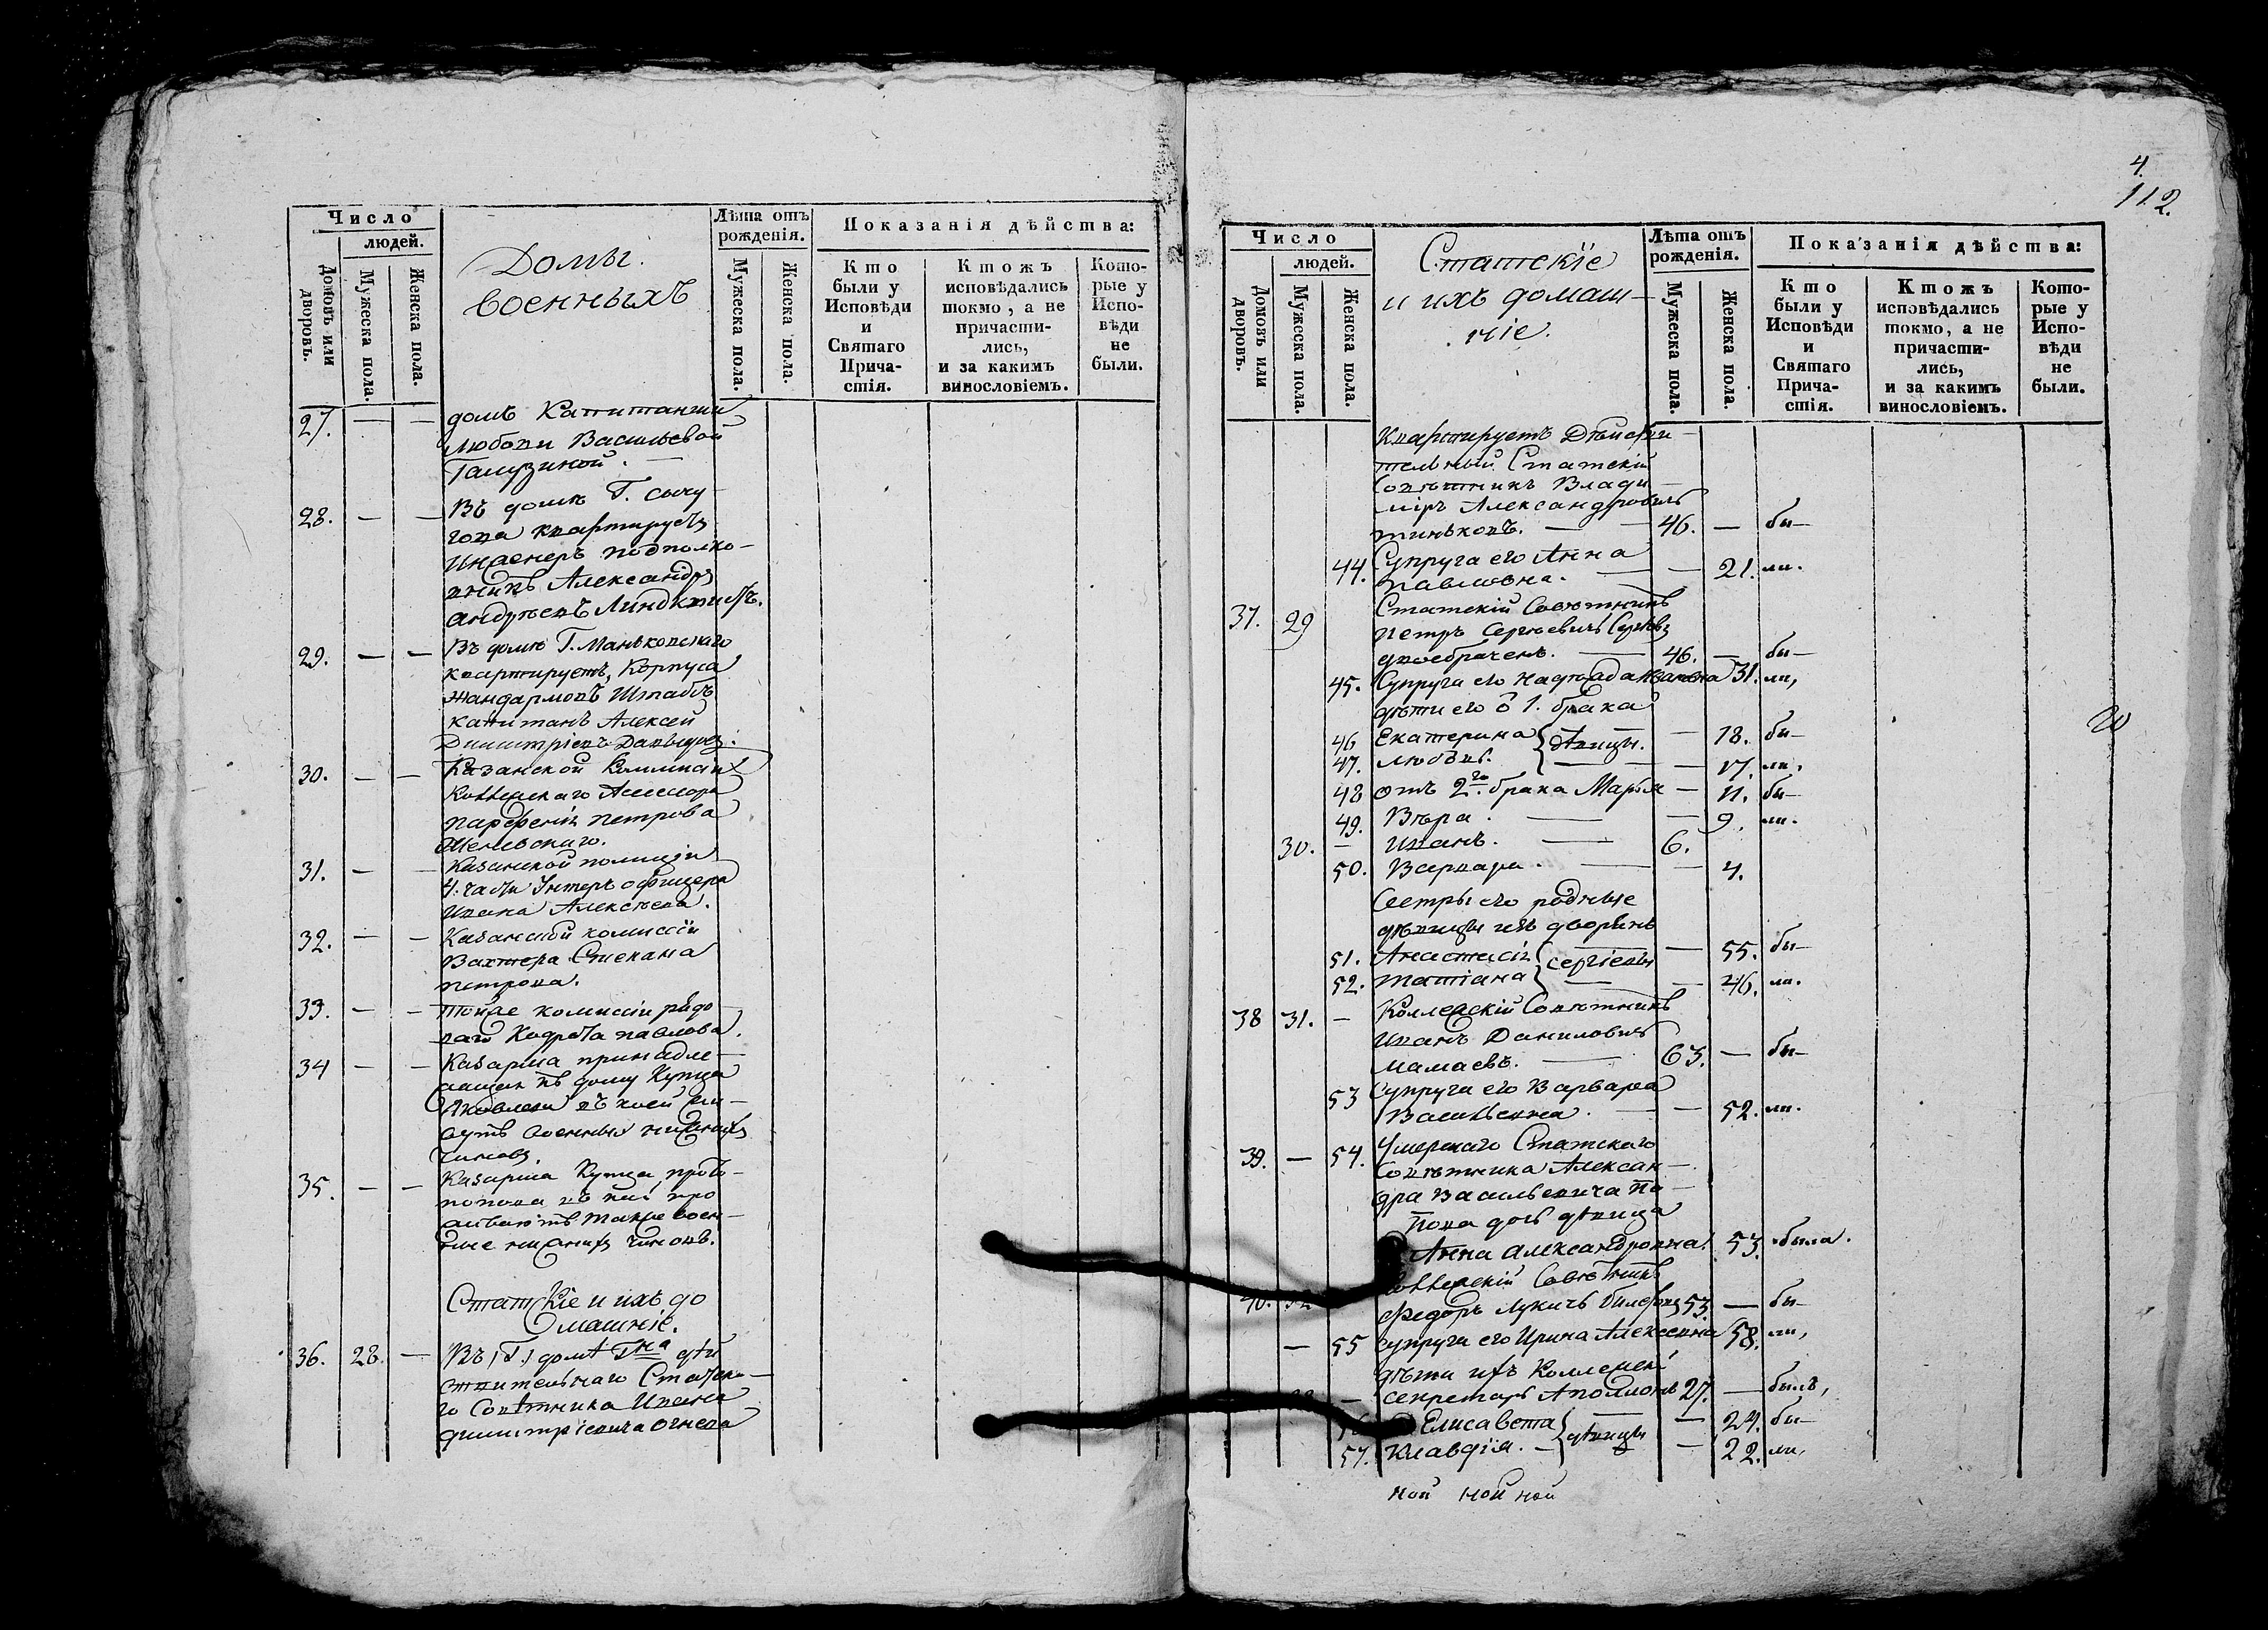 Число
людей.
Домовъ или дворовъ.
Мужеска пола.
Женска пола.
Домы
военныхъ
Лѣта отъ
рожденія.
Мужеска пола.
Женска пола.
Показанія дѣйства:
Кто
были у
Исповѣди
и
Святаго
Прича-
стія.
Ктожъ
исповѣдались
токмо, а не
причасти-
лись,
и за какимъ
винословіемъ.
Кото-
рые у
Испо-
вѣди
не
были.
27. — — домъ Капитанши
Любови Васильевой
28. — — Въ домѣ Г. Сычу-
гова квартируетъ
Инженеръ подполко-
вникъ Александръ
Андреевъ
29. — — Въ домѣ Г. Маньковскаго
квартируетъ, Корпуса
Жандармовъ Штабсъ
Капитанъ Алексей
Димитріевъ Давыдов.
30. — — Казанской Коммисіи
Коллежскаго Ассесора
Парфенія Петрова
31. — — Казанской полиціи
4. части Унтеръ офицера
Ивана Алексѣева.
32. — — Казанской комиссіи
Вахтера Степана
Петрова.
33. — — Тойже комиссіи рядо
ваго Павлова.
34 — — Казарма принадле-
жащая къ дому Купца
Яковлева въ коей жи-
вутъ военныхъ нижнихъ
чиновъ.
35. — — Казарма Купца прото-
попова въ ней про
живаютъ также воен-
ные нижнихъ чиновъ.
Статскіе и ихъ до
машніе.
36. 28. — Въ (Г.) домѣ Гна дѣй
ствительнаго Статска-
го Совѣтника Ивана
Димитріевича Огнева
4.
112.
Число
людей.
Домовъ или дворовъ.
Мужеска пола.
Женска пола.
Статскіе
и ихъ домаш-
ніе.
Лѣта отъ
рожденія.
Мужеска пола.
Женска пола.
Показанія дѣйства:
Кто
были у
Исповѣди
и
Святаго
Прича-
стія.
Ктожъ
исповѣдались
токмо, а не
причасти-
лись,
и за какимъ
винословіемъ.
Кото-
рые у
Испо-
вѣди
не
были.
Квартируетъ Дѣйстви-
тельный Статскій
Совѣтникъ Влади-
міръ Александровичь
Тиньковъ. — 46. — бы-
44. Супруга его Анна
Павловна. — — 21. ли.
37. 29 Статскій Совѣтникъ
Петръ Сергѣевичь Сергѣевъ
двоебраченъ. — 46. — бы-
45. Супруга его Надѣжда Ивановна 31. ли,
дѣти его ѿ 1. брака
46 Екатерина } дѣвицы. — 18. бы-
47. Любовь. — 17. ли,
48 отъ 2го. брака Марья — 11. бы-
49. Вѣра. — — 9. ли.
30. — Иванъ. — 6.
50. Варвара. — — 4.
Сестры его родные
дѣвицы изъ дворянъ
51. Анастасія } Сергіевы — 55. бы-
52. Татіана — 46. ли.
38 31. — Коллежскій Совѣтникъ
Иванъ Даниловичь
Мамаевъ. — 63. — бы-
53 Супруга его Варвара
Васильевна. — — 52. ли.
39. — 54. Умершаго Статскаго
Совѣтника Алексан-
дра Васильевича По-
пова дочь дѣвица
Анна Александровна. 53. была.
40. 32 Коллежскій Совѣтникъ
Федоръ Лукичь 53. — бы-
— 55 Супруга его Ирина Алексеевна 58. ли,
дѣти ихъ Коллежскі
— Секретарь Аполлонъ 27. — былъ,
Елисавета } дѣвицы — 24. бы-
57. Клавдія. — — 22. ли,
ной ной ной